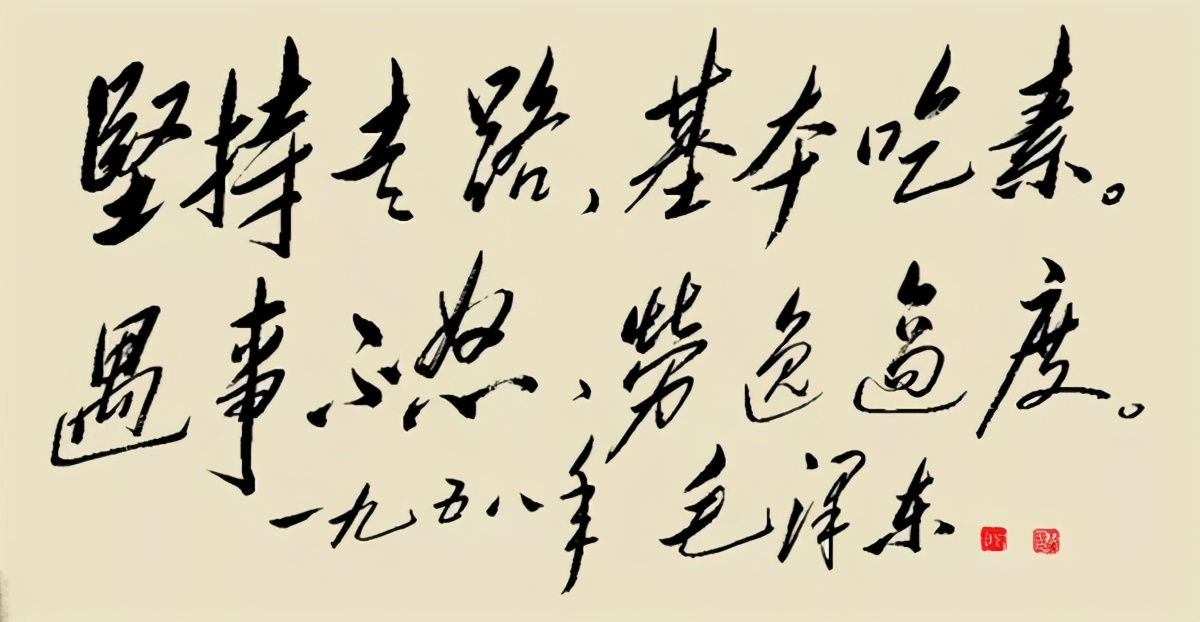 堅持走路、基本吃素。
遇事不怒、勞逸適度。
一九五八年 毛泽东